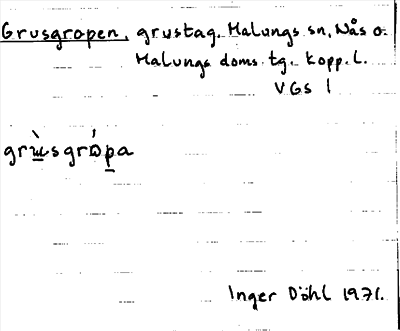 Grusgropen, grustag. Malungs sn, Nås o.
Malungs doms. tg. Kopp. l.
VGS 1
grɯ̀sgrɷ́pa
Inger Döhl 1971.